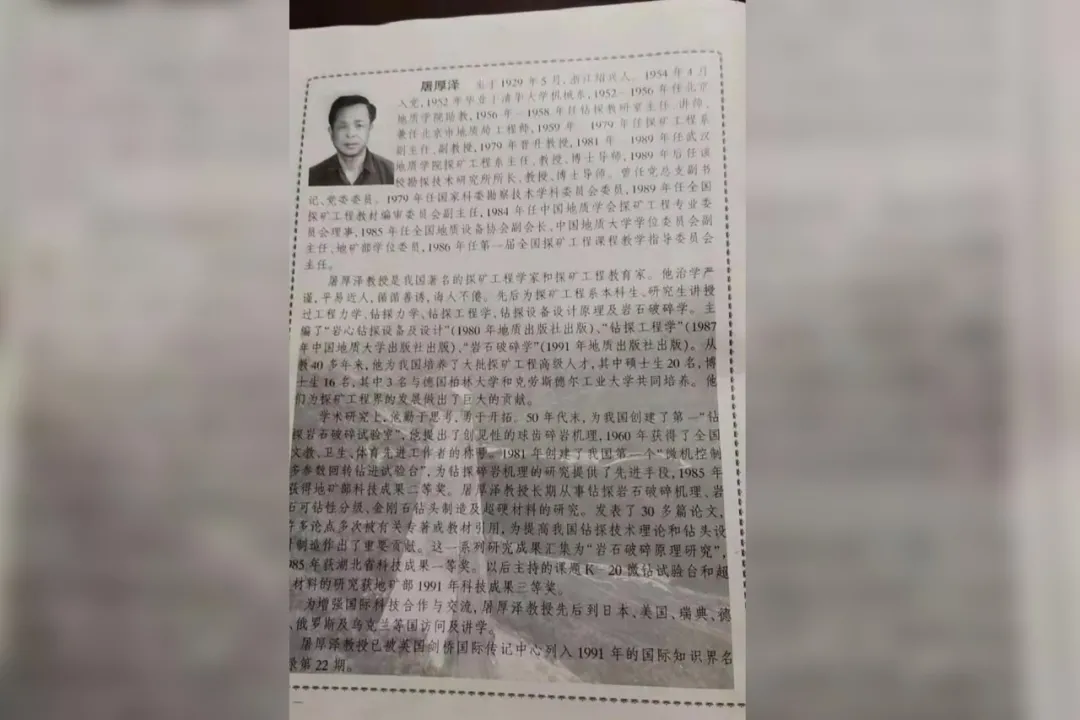 屠厚泽 生于1929年5月,浙江绍兴人。1954年4月
入党,1952年毕业于清华大学机械系,1952-1956年任北京
地质学院助教,1956年-1958年任钻探教研室主任、讲师,
兼任北京市地质局工程师,1959年 1979年任探矿工程系
副主任、副教授,1979年晋升教授,1981年 1989年任武汉
地质学院探矿工程系主任、教授、博士导师,1989年后任该
校勘探技术研究所所长、教授、博士导师。曾任党总支副书
记、党委委员。1979年任国家科委勘察技术学科委员会委员,1989年任全国
探矿工程教材编审委员会副主任,1984年任中国地质学会探矿工程专业委
员会理事,1985年任全国地质设备协会副会长、中国地质大学学位委员会副
主任、地矿部学位委员,1986年任第一届全国探矿工程课程教学指导委员会
主任。
屠厚泽教授是我国著名的探矿工程学家和探矿工程教育家。他治学严
谨,平易近人,循循善诱,诲人不倦。先后为探矿工程系本科生、研究生讲授
过工程力学、钻探力学、钻探工程学、钻探设备设计原理及岩石破碎学。主
编了“岩心钻探设备及设计”(1980年地质出版社出版)、“钻探工程学”(1987
年中国地质大学出版社出版)、“岩石破碎学”(1991年地质出版社出版)。从
教40多年来,他为我国培养了大批探矿工程高级人才,其中硕士生20名,博
士生16名,其中3名与德国柏林大学和克劳斯德尔工业大学共同培养。他
们为探矿工程界的发展做出了巨大的贡献。
学术研究上,他勤于思考,勇于开拓。50年代末,为我国创建了第一“钻
探岩石破碎试验室”,他提出了创见性的球齿碎岩机理,1960年获得了全国
文教、卫生、体育先进工作者的称号。1981年创建了我国第一个“微机控制
多参数回转钻进试验台”,为钻探碎岩机理的研究提供了先进手段,1985年
获得地矿部科技成果二等奖。屠厚泽教授长期从事钻探岩石破碎机理、岩
石可钻性分级、金刚石钻头制造及超硬材料的研究。发表了30多篇论文,
许多论点多次被有关专著或教材引用,为提高我国钻探技术理论和钻头设
计制造作出了重要贡献。这一系列研究成果汇集为“岩石破碎原理研究”,
85年获湖北省科技成果一等奖。以后主持的课题K-20微钻试验台和超
材料的研究获地矿部1991年科技成果三等奖。
为增强国际科技合作与交流,屠厚泽教授先后到日本、美国、瑞典、德
、俄罗斯及乌克兰等国访问及讲学。
屠厚泽教授已被英国剑桥国际传记中心列入1991年的国际知识界名
录第22期。